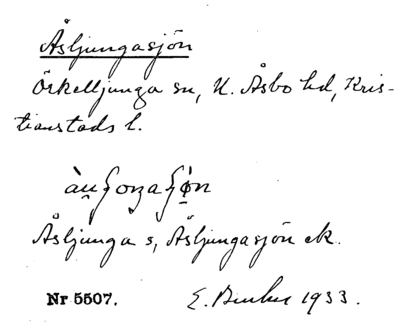 Åsljungasjön
Örkelljunga sn, N. Åsbo hd, Kris-
tianstads l.
Åsljunga s, Åsljungasjön ek.
Nr 5507. E. 1933.